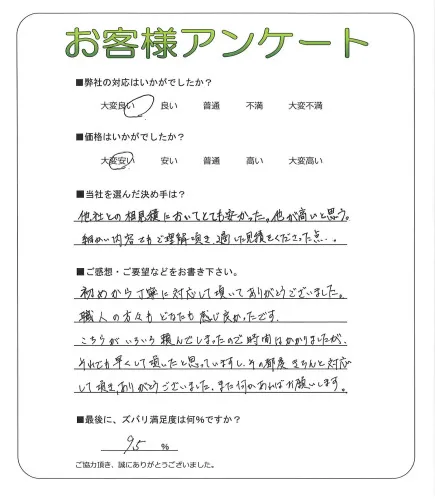 お客様アンケート
■弊社の対応はいかがでしたか？
大変良い 良い 普通 不満 大変不満
■価格はいかがでしたか？
大変安い 安い 普通 高い 大変高い
■当社を選んだ決め手は？
他社との相見積においてとても安かった。他が高いと思う。
細かい内容でもご理解頂き、適した見積をくださった点・。
■ご感想・ご要望などをお書き下さい。
初めから丁寧に対応して頂いてありがとうございました。
職人の方々もどなたも感じ良かったです。
こちらがいろいろ頼んでしまったので時間はかかりましたが、
それでも早くして頂いたと思っていますし、その都度きちんと対応
して頂き、ありがとうございました。また何かあればお願いします。
■最後に、ズバリ満足度は何%ですか？
95 %
ご協力頂き、誠にありがとうございました。